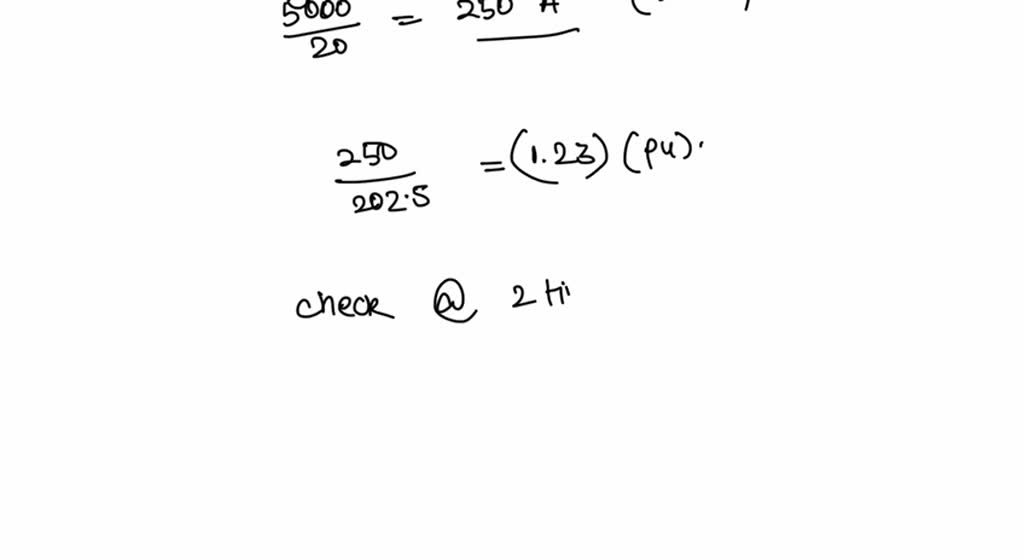 5000/20 = 250 A (
250/202.5 = (1.23) (pu).
check @ 2 ti